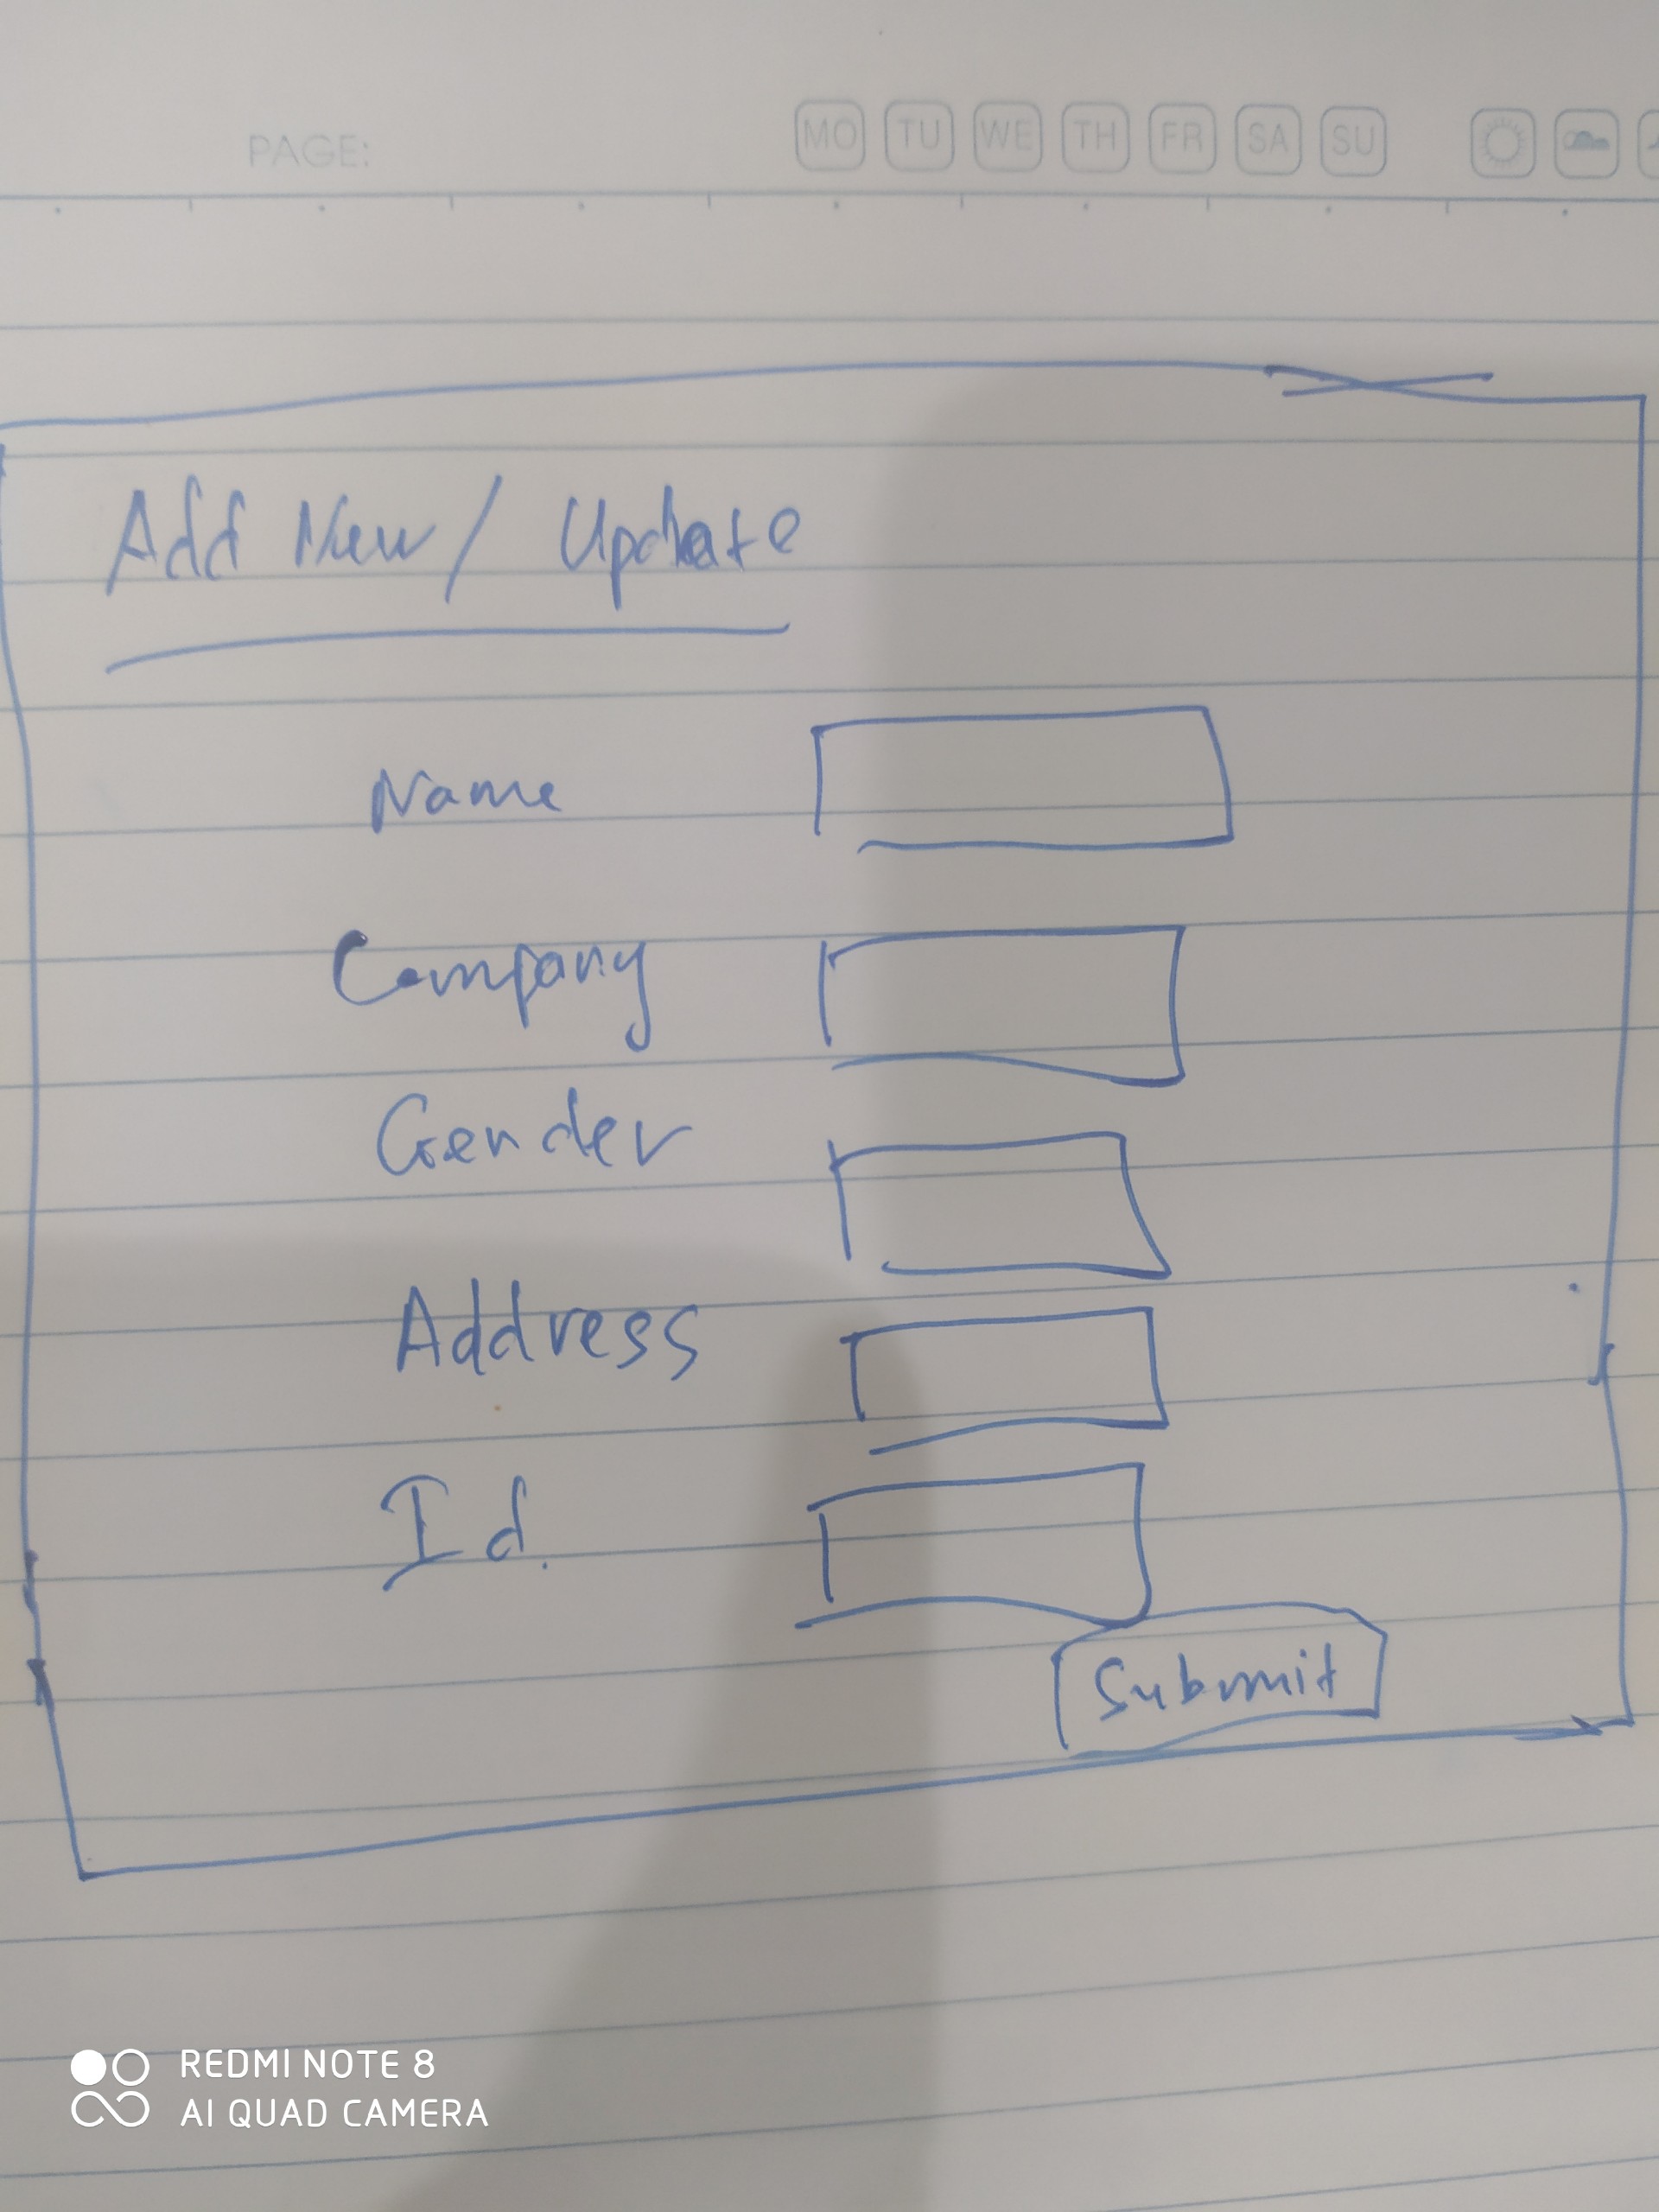 PAGE: MO TU WE TH FR SA SU
Add New / Update
Name
Company
Gender
Address
Id.
Submit
REDMI NOTE 8
AI QUAD CAMERA